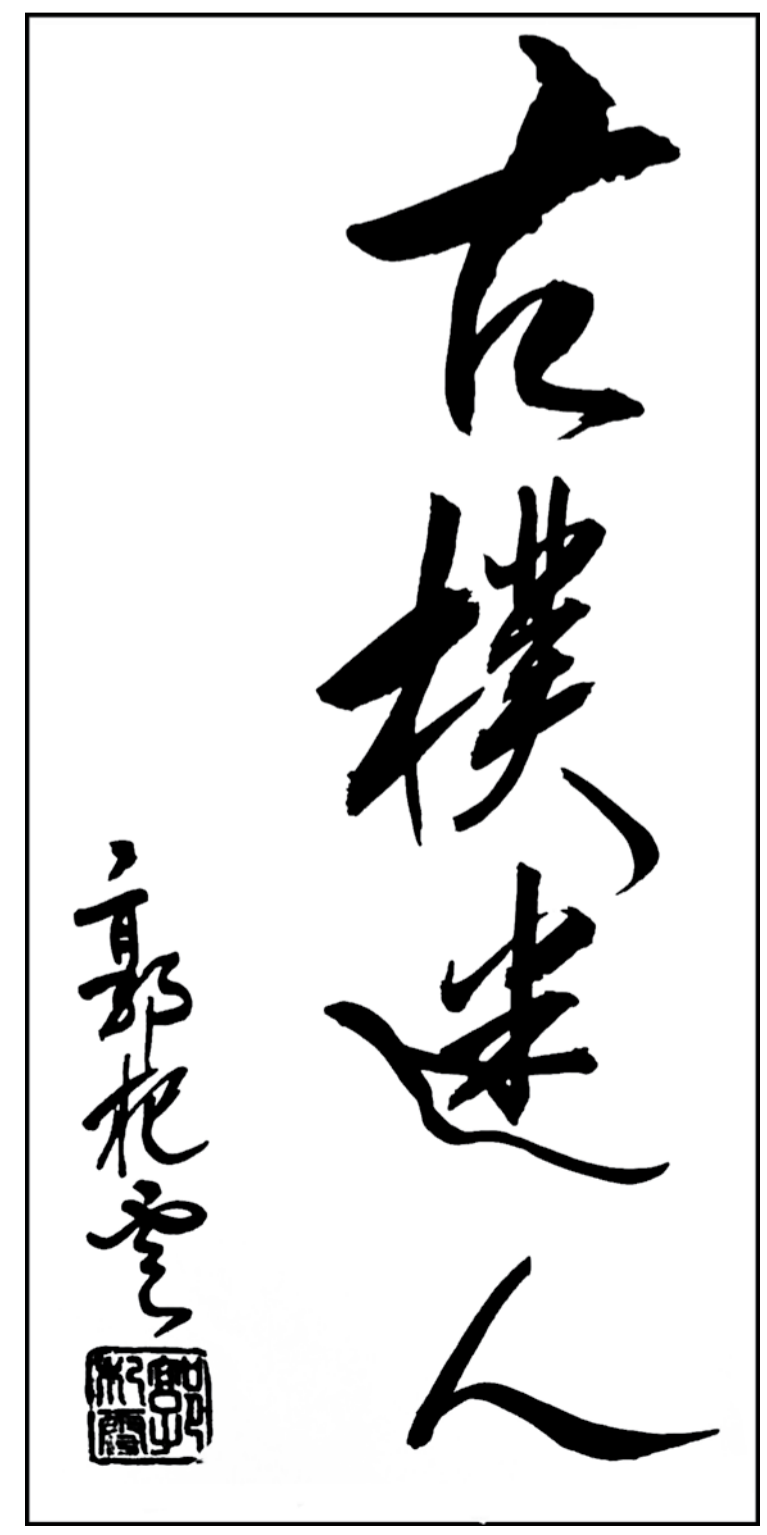 古樸迷人
郭杞雲